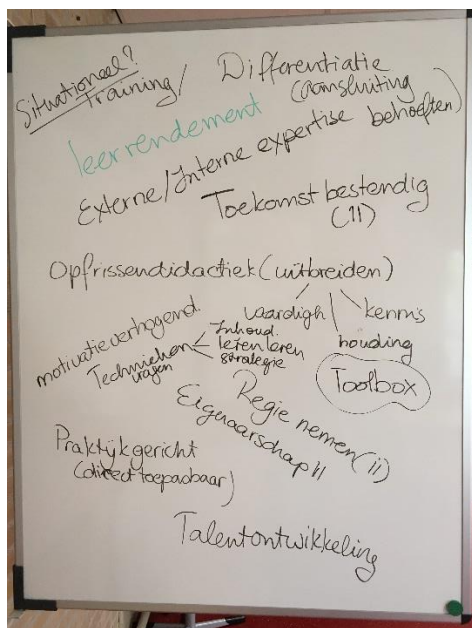 Situationeel?
Training/
Differentiatie
(aansluiting
behoeften)
leerrendement
Externe/Interne expertise
Toekomstbestendig
(11)
Opfrissen didactiek (uitbreiden)
vaardigh
kennis
houding
motivatieverhogend
Technieken
vragen
Inhoud.
leren leren
strategie
Toolbox
Regie nemen (11)
Eigenaarschap 11
Praktijkgericht
(direct toepasbaar)
Talentontwikkeling